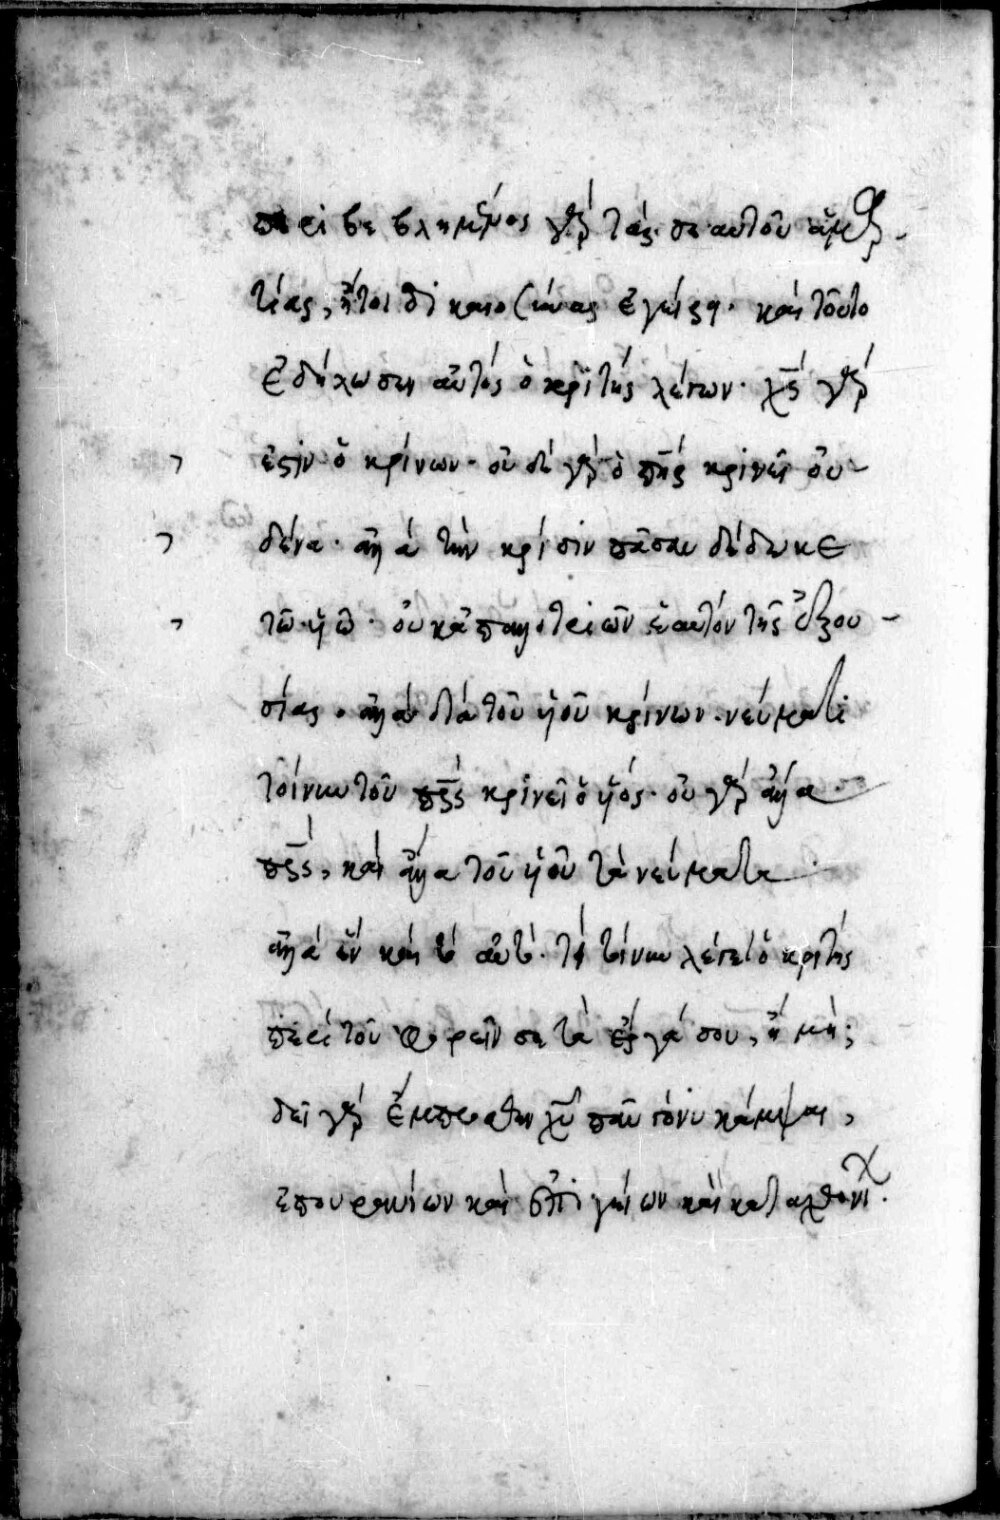 περιβεβλημένος γὰρ τὰς σεαυτοῦ ἁμαρ-
τίας, ἤτοι δικαιοσύνας ἐγείρῃ. καὶ τοῦτο
ἐδήλωσεν αὐτὸς ὁ κριτὴς λέγων. χς γὰρ
ἐστὶν ὁ κρίνων. οὐδὲ γὰρ ὁ πηρ κρίνει οὐ-
δένα. ἀλλὰ τὴν κρίσιν πᾶσαν δέδωκε
τῷ υἱῷ. οὐκ ἀπαλλοτριῶν ἑαυτὸν τῆς ἐξου-
σίας. ἀλλὰ διὰ τοῦ υἱοῦ κρίνων. νεύματι
τοίνυν τοῦ πρς κρίνει ὁ υἱός. οὐ γὰρ ἄλλα
πρς, καὶ ἄλλα τοῦ υἱοῦ τὰ νεύματα
ἀλλὰ ἓν καὶ τὸ αὐτό. τί τοίνυν λέγει ὁ κριτὴς
περὶ τοῦ φορεῖν σε τὰ ἔργα σου, ἢ μή;
δεῖ γὰρ ἔμπροσθεν χυ πᾶν γόνυ κάμψαι,
ἐπουρανίων καὶ ἐπιγείων καὶ καταχθονί.